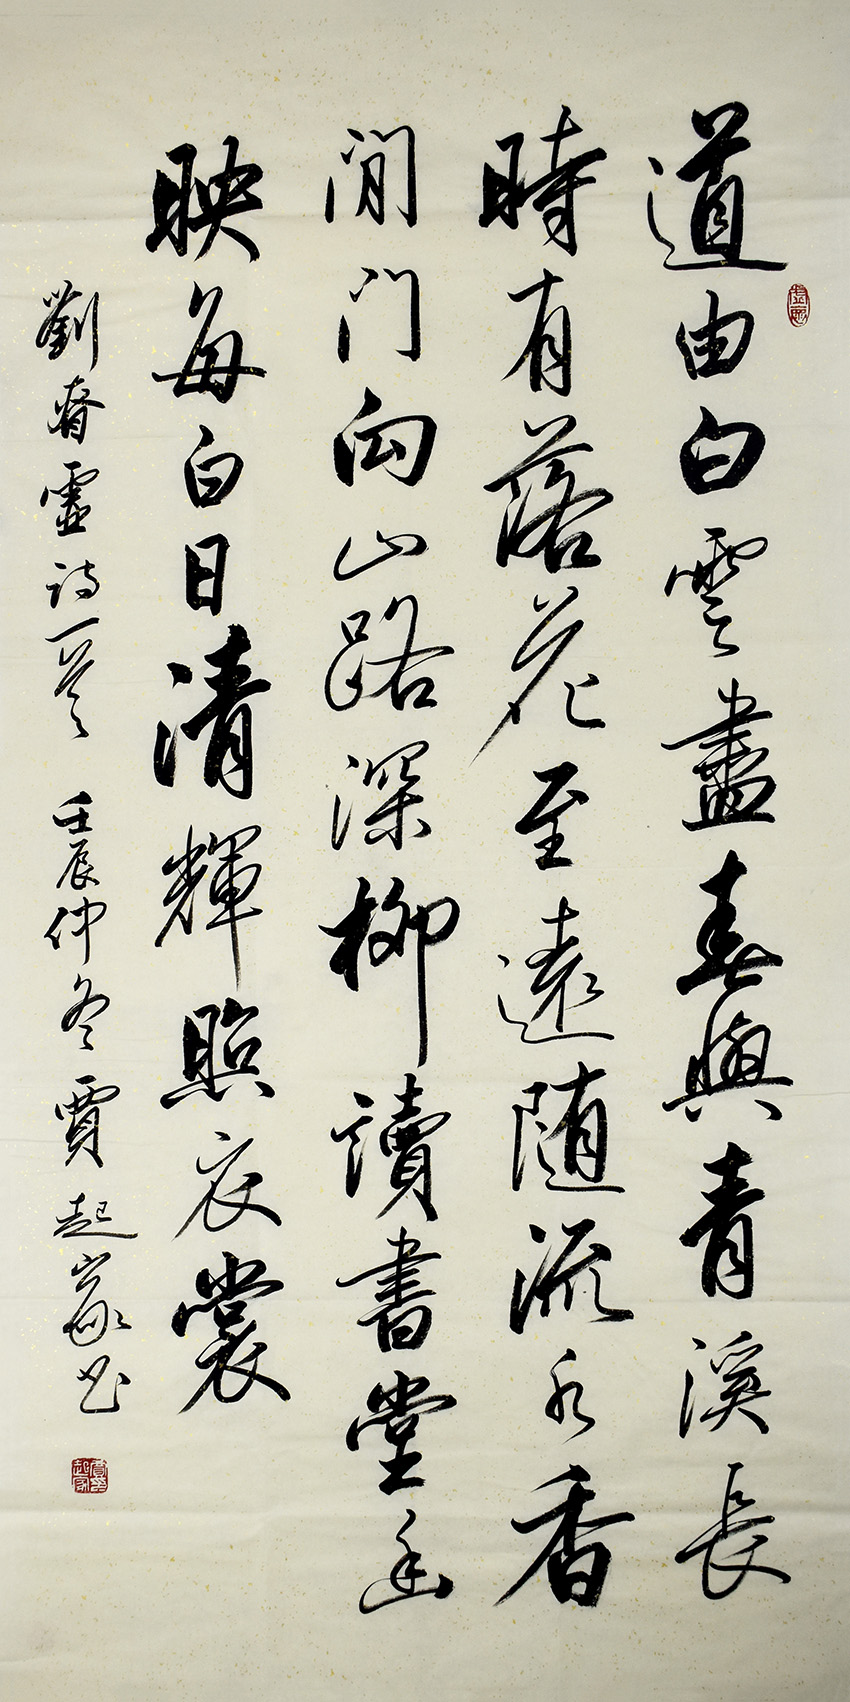 道由白雲盡春與青溪長
時有落花至遠隨流水香
閒門向山路深柳讀書堂幽
映每白日清輝照衣裳
劉眘虛詩一首 壬辰仲冬賈起家書